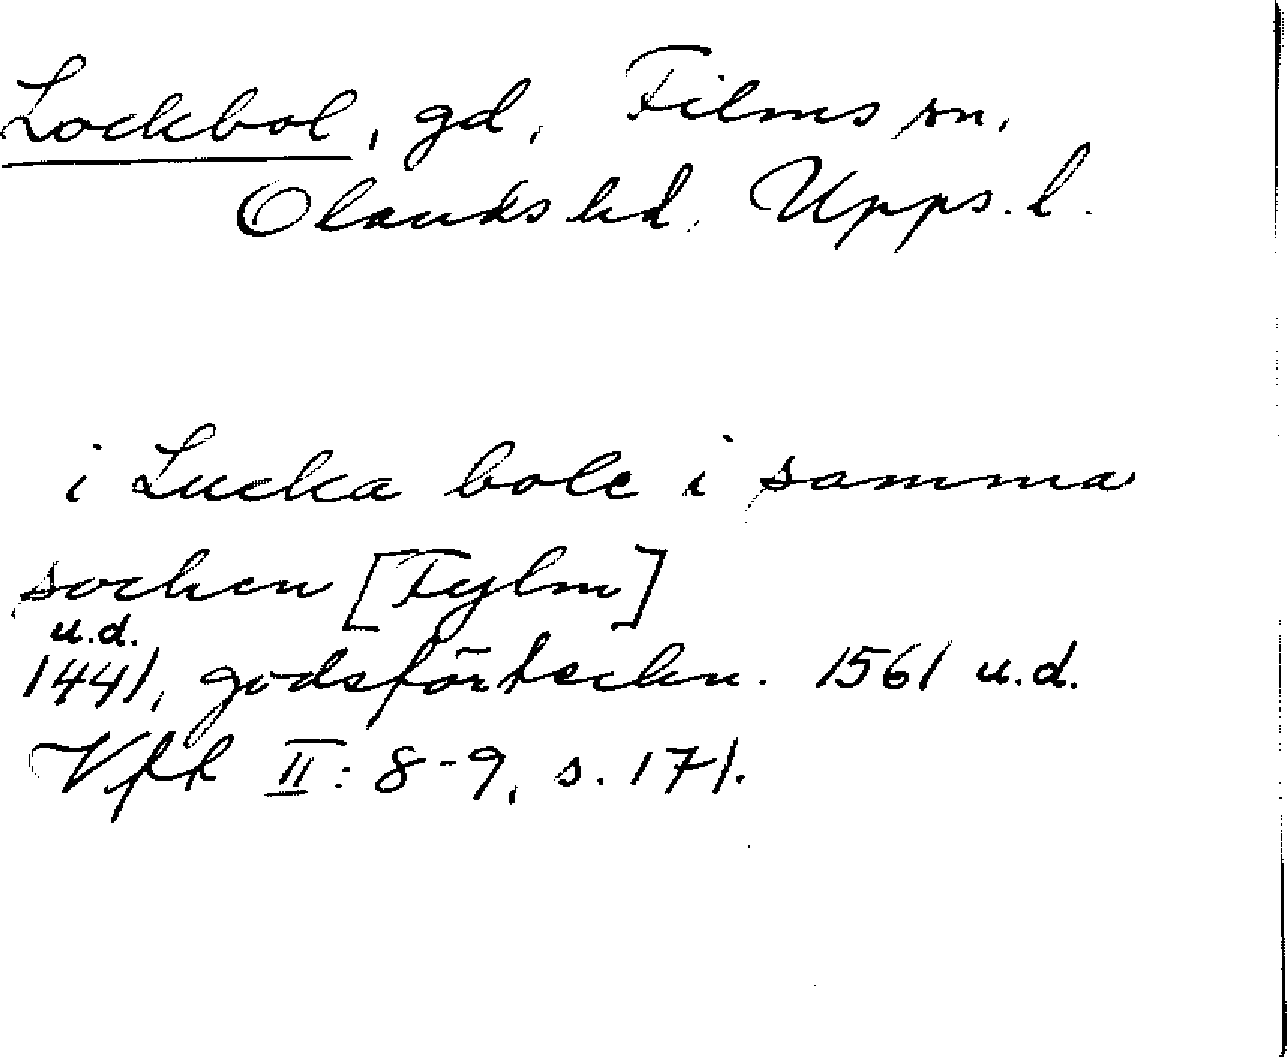 Lockbol, gd, Films sn,
Olands hd, Upps. l.
i Lucka bole i samma
sochen [Fylm]
u.d.
1441, godsförteckn. 1561 u.d.
Vfk II: 8-9, s. 171.